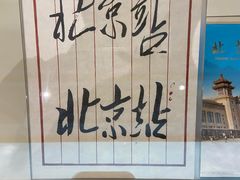 北京站
北京站
北京